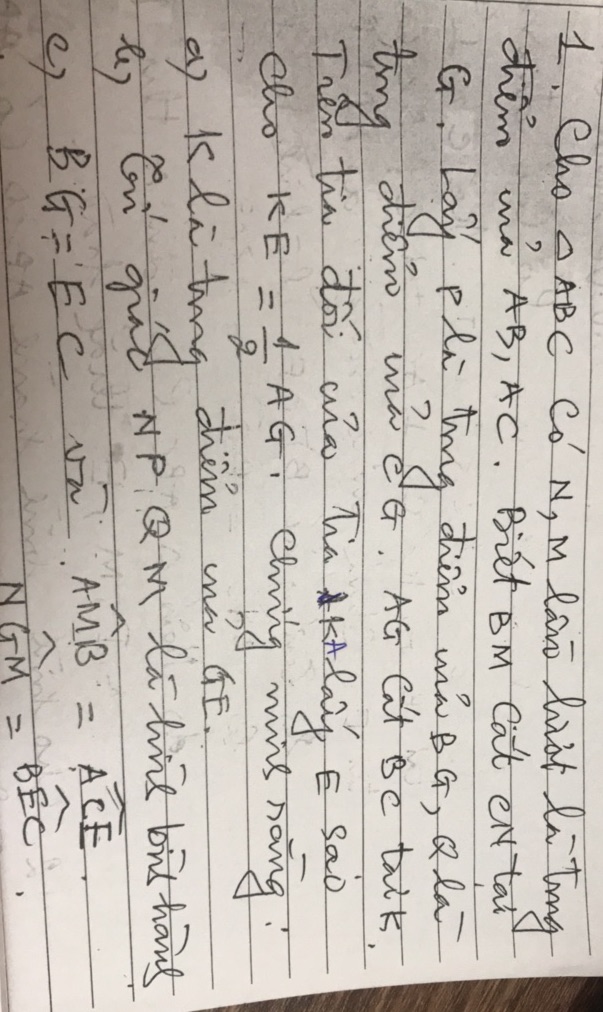 1. Cho △ABC có N, M lần lượt là trung
điểm của AB, AC. Biết BM cắt CN tại
G. Lấy P là trung điểm của BG, Q là
trung điểm của CG. AG cắt BC tại K.
Trên tia đối của tia KA lấy E sao
cho KE = 1/2 AG. Chứng minh rằng:
a) K là trung điểm của GE.
b) Tứ giác NPQM là hình bình hành
c) BG = EC và AM̂B = AĈE.
NĜM = BÊC.